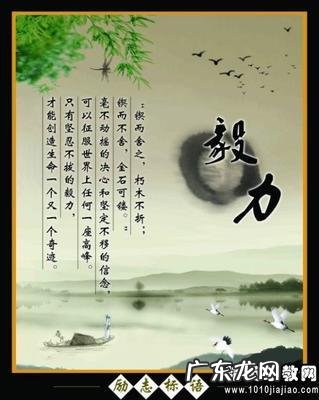 毅力
“锲而舍之，朽木不折；
锲而不舍，金石可镂。”
毫不动摇的决心和坚定不移的信念，
可以征服世界上任何一座高峰。
只有坚忍不拔的毅力，
才能创造生命一个又一个奇迹。
励志标语
广东龙网教网
www.1010jiajiao.com